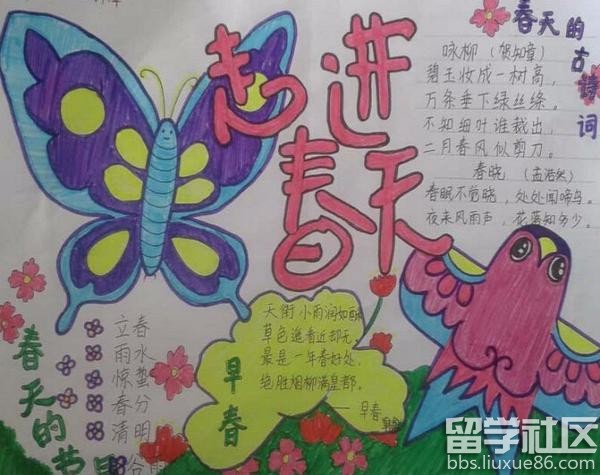 走进春天
春天的古诗词
咏柳（贺知章）
碧玉妆成一树高，
万条垂下绿丝绦。
不知细叶谁裁出，
二月春风似剪刀。
春晓（孟浩然）
春眠不觉晓，处处闻啼鸟。
夜来风雨声，花落知多少。
早春
天街小雨润如酥
草色遥看近却无。
最是一年春好处，
绝胜烟柳满皇都。
——早春
春天的节
立春
雨水
惊蛰
春分
清明
谷雨
留学社区
bbs.liuxue86.com